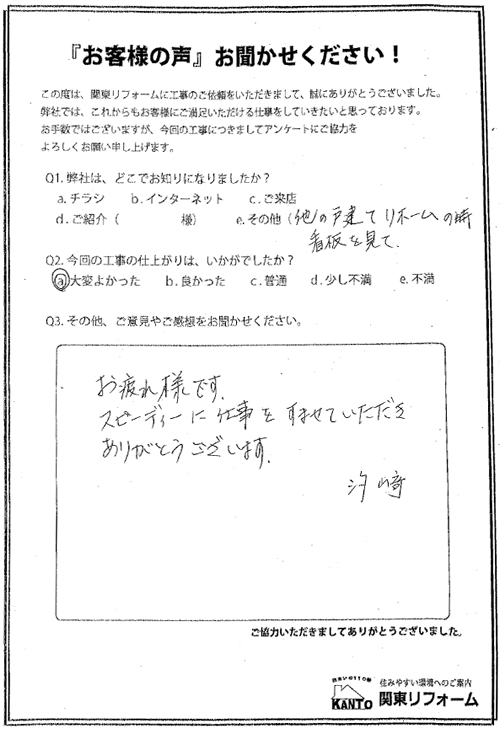 『お客様の声』お聞かせください！
この度は、関東リフォームに工事のご依頼をいただきまして、誠にありがとうございました。
弊社では、これからもお客様にご満足いただける仕事をしていきたいと思っております。
お手数ではございますが、今回の工事につきましてアンケートにご協力を
よろしくお願い申し上げます。
Q1. 弊社は、どこでお知りになりましたか？
a. チラシ　b. インターネット　c. ご来店
d. ご紹介（　　　　様）　e. その他（他の戸建てリホームの時
看板を見て.
Q2. 今回の工事の仕上がりは、いかがでしたか？
a 大変よかった　b. 良かった　c. 普通　d. 少し不満　e. 不満
Q3. その他、ご意見やご感想をお聞かせください。
お疲れ様です.
スピーディーに仕事をすませていただき
ありがとうございます.
汐﨑
ご協力いただきましてありがとうございました。
住まいの110番
KANTO
住みやすい環境へのご案内
関東リフォーム